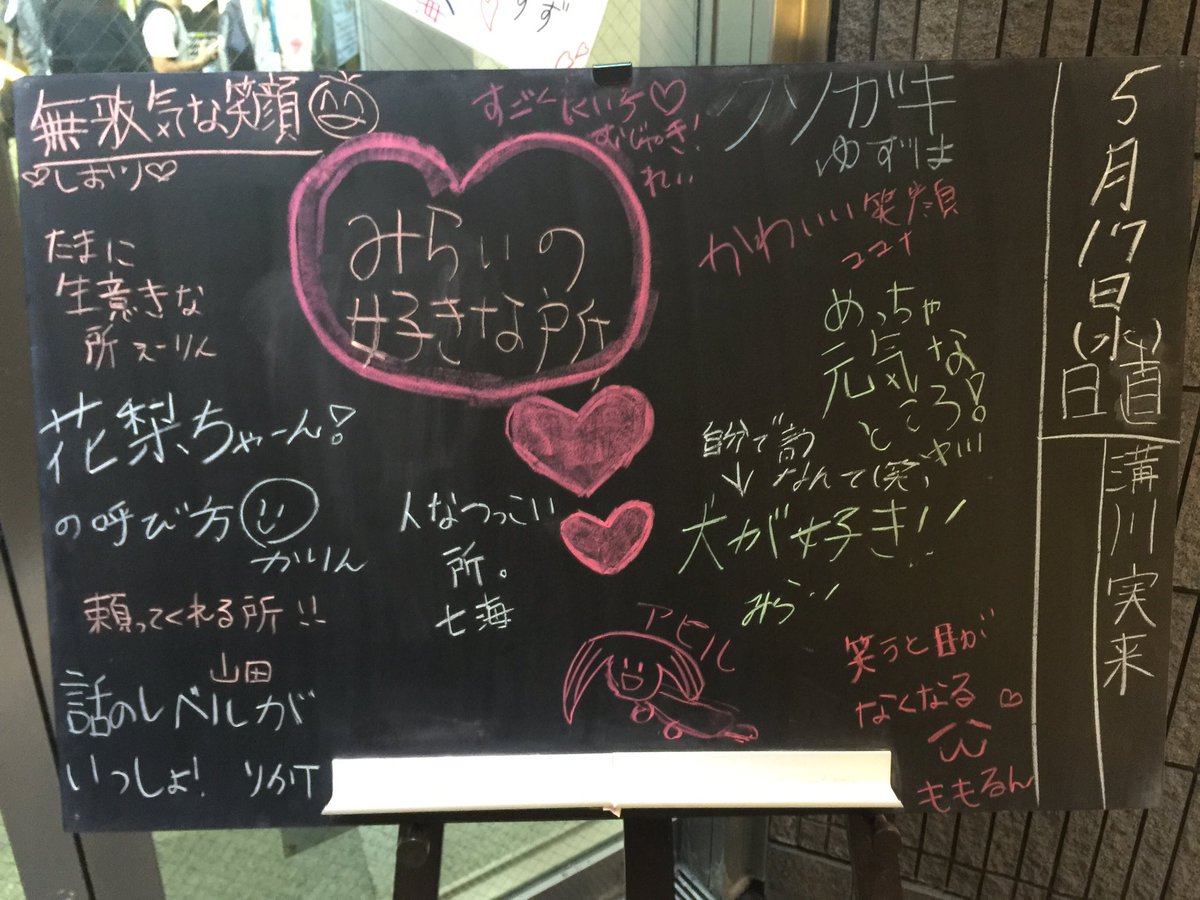 5月17日(水)
日直
溝川実来
みらいの
好きな所
無邪気な笑顔
♡しおり♡
たまに
生意きな
所 えーりん
花梨ちゃーん!
の呼び方
かりん
頼ってくれる所!!
山田
話のレベルが
いっしょ! りかT
すごくいい子♡
むじゃき!
れい
クソガキ
ゆずは
かわいい笑顔
ココナ
めっちゃ
元気な
ところ!
自分で言う
なんて(笑)
犬が好き!!
みらい
人なつっこい
所。
七海
アヒル
笑うと目が
なくなる♡
ももるん